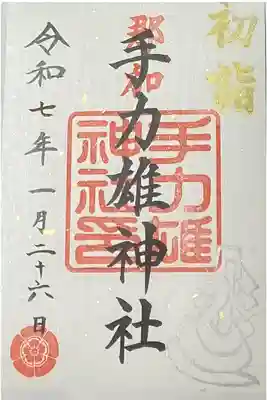 初詣
那加
手力雄神社
手力雄神社印
令和七年一月二十六日